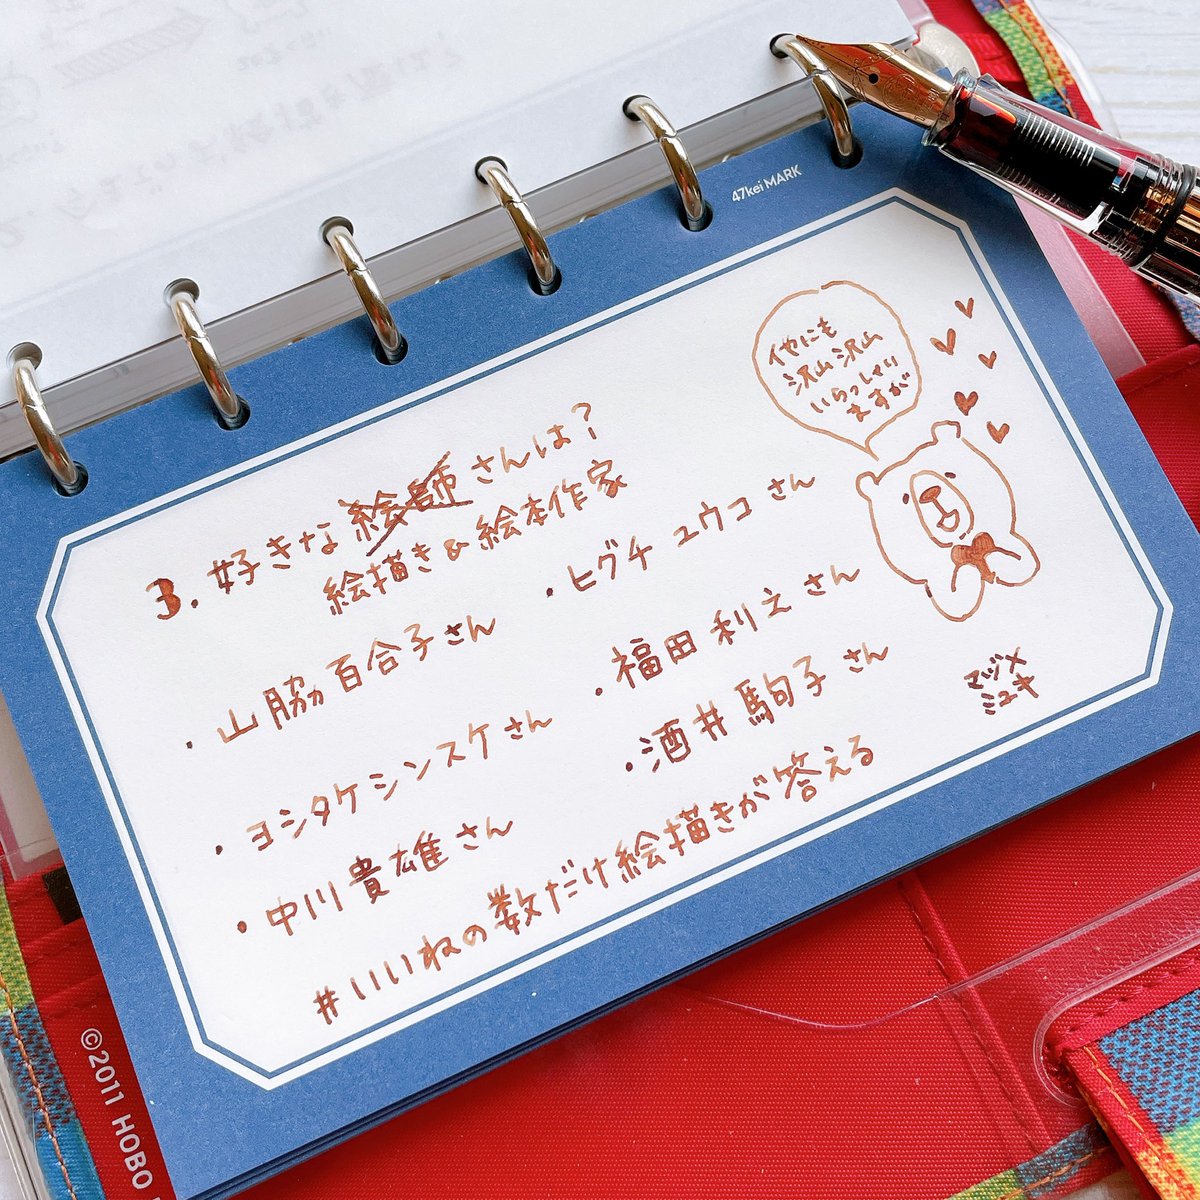 47kei MARK
他にも
沢山沢山
いらっしゃい
ますが
3. 好きな絵師さんは?
絵描き&絵本作家
・山脇百合子さん
・ヒグチユウコさん
・ヨシタケシンスケさん
・福田利之さん
・中川貴雄さん
・酒井駒子さん
#いいねの数だけ絵描きが答える
マツメ
ミユキ
©2011 HOBO